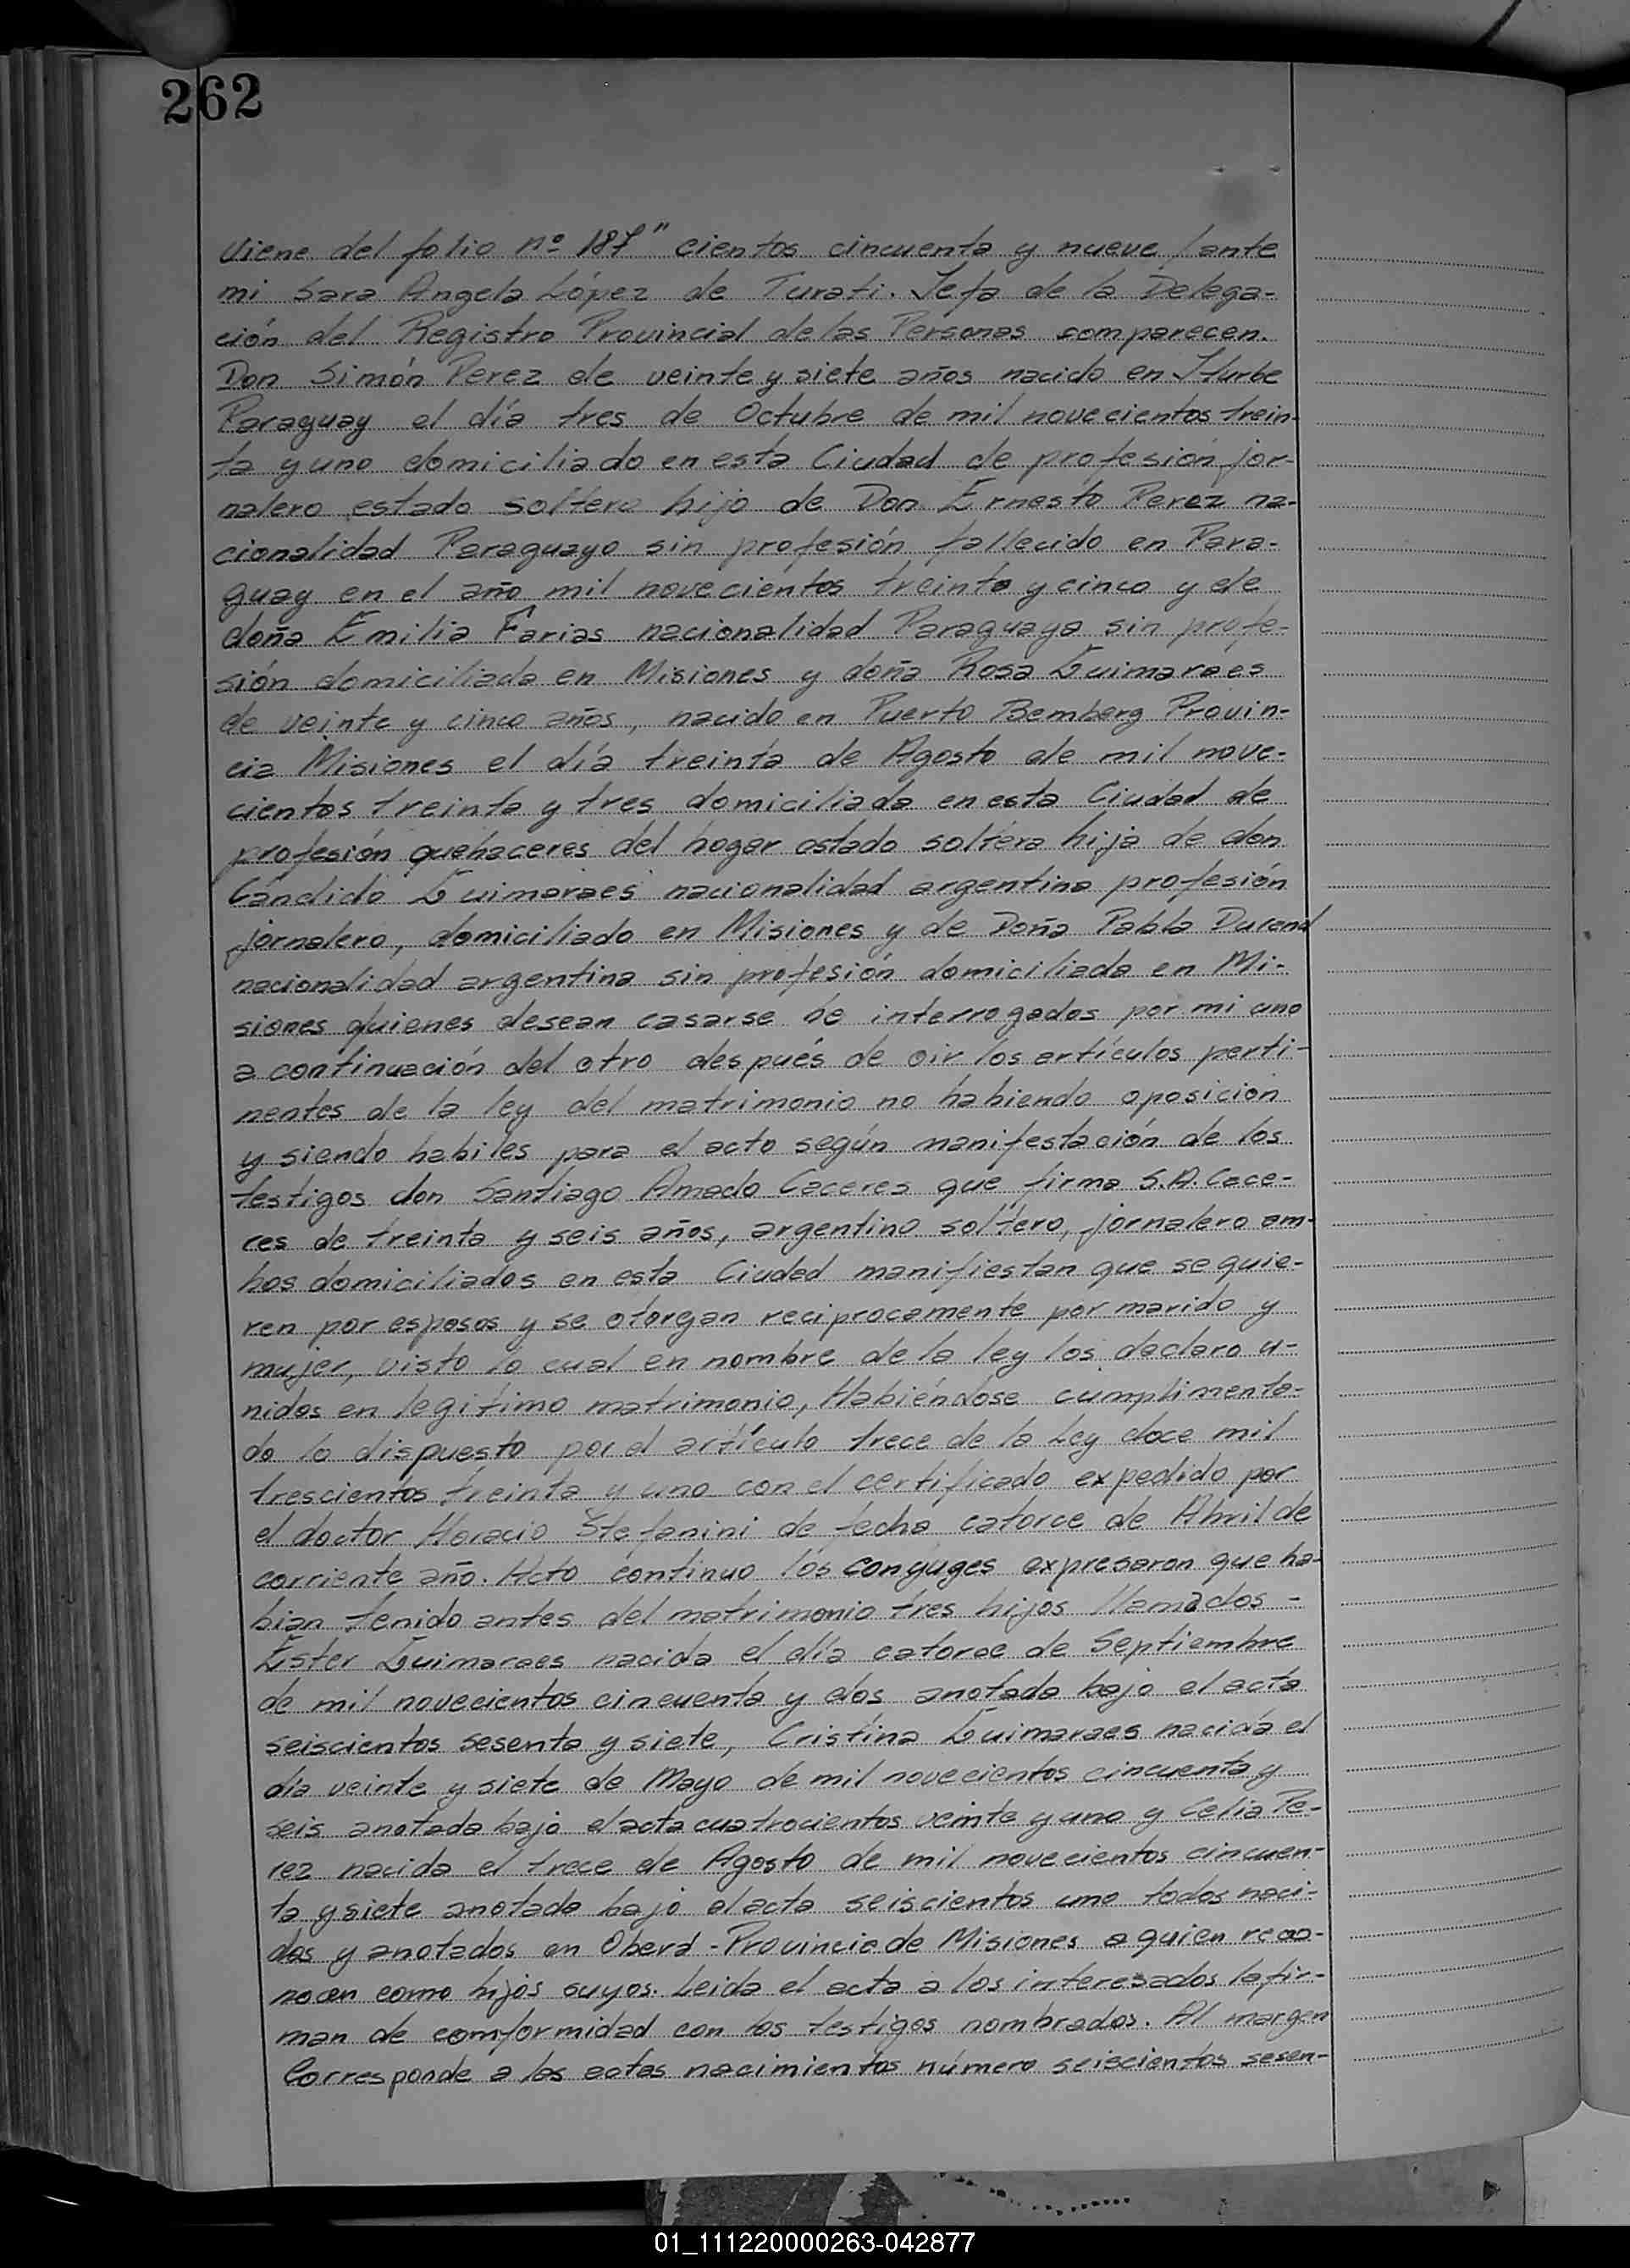 262
Viene del folio nº 187" cientos cincuenta y nueve, ante
mi Sara Angela López de Turati. Jefa de la Delega-
ción del Registro Provincial de las Personas comparecen.
Don Simón Perez de veinte y siete años nacido en Iturbe
Paraguay el día tres de Octubre de mil novecientos trein-
ta y uno domiciliado en esta Ciudad de profesión jor-
nalero estado soltero hijo de Don Ernesto Perez na-
cionalidad Paraguayo sin profesión fallecido en Para-
guay en el año mil novecientos treinta y cinco y de
doña Emilia Farias nacionalidad Paraguaya sin profe-
sión domiciliada en Misiones y doña Rosa Guimaraes
de veinte y cinco años, nacido en Puerto Bemberg Provin-
cia Misiones el día treinta de Agosto de mil nove-
cientos treinta y tres domiciliada en esta Ciudad de
profesión quehaceres del hogar estado soltera hija de don
Cándido Guimaraes nacionalidad argentina profesión
jornalero, domiciliado en Misiones y de Doña Pabla Durand
nacionalidad argentina sin profesión domiciliada en Mi-
siones quienes desean casarse de interrogados por mi uno
a continuación del otro después de oir los artículos perti-
nentes de la ley del matrimonio no habiendo oposición
y siendo habiles para el acto según manifestación de los
testigos don Santiago Amado Caceres que firma S.A. Cace-
res de treinta y seis años, argentino soltero, jornalero am-
bos domiciliados en esta Ciudad manifiestan que se quie-
ren por esposos y se otorgan reciprocamente por marido y
mujer, visto lo cual en nombre de la ley los declaro u-
nidos en legitimo matrimonio, Habiéndose cumplimenta-
do lo dispuesto por el artículo trece de la Ley doce mil
trescientos treinta y uno con el certificado expedido por
el doctor Horacio Stefanini de fecha catorce de Abril de
corriente año. Acto continuo los conyuges expresaron que ha-
bian tenido antes del matrimonio tres hijos llamados -
Ester Guimaraes nacida el día catorce de Septiembre
de mil novecientos cincuenta y dos anotada bajo el acta
seiscientos sesenta y siete, Cristina Guimaraes nacida el
día veinte y siete de Mayo de mil novecientos cincuenta y
seis anotada bajo el acta cuatrocientos veinte y uno y Celia Pe-
rez nacida el trece de Agosto de mil novecientos cincuen-
ta y siete anotada bajo el acta seiscientos uno todos naci-
dos y anotados en Oberá - Provincia de Misiones a quien reco-
nocen como hijos suyos. Leida el acta a los interesados la fir-
man de comformidad con los testigos nombrados. Al margen
Corresponde a las actas nacimientos número seiscientos sesen-
01_111220000263-042877